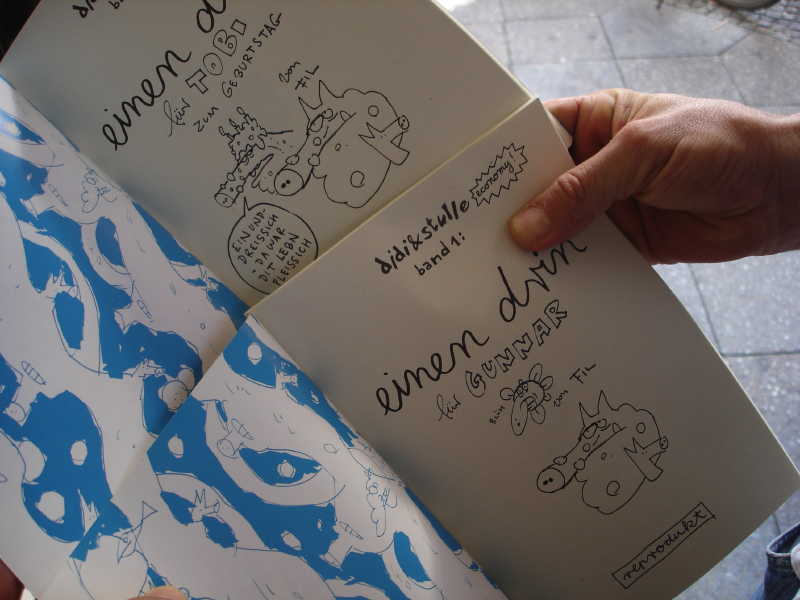 einen d
für TOBI
zum GEBURTSTAG
von FIL
EIN UND-
DREISSICH
DA WAR
DIT LEBN
FLEISSICH
didi & stulle
band 1:
economy!
einen drin
für GUNNAR
zum
von FIL
reprodukt